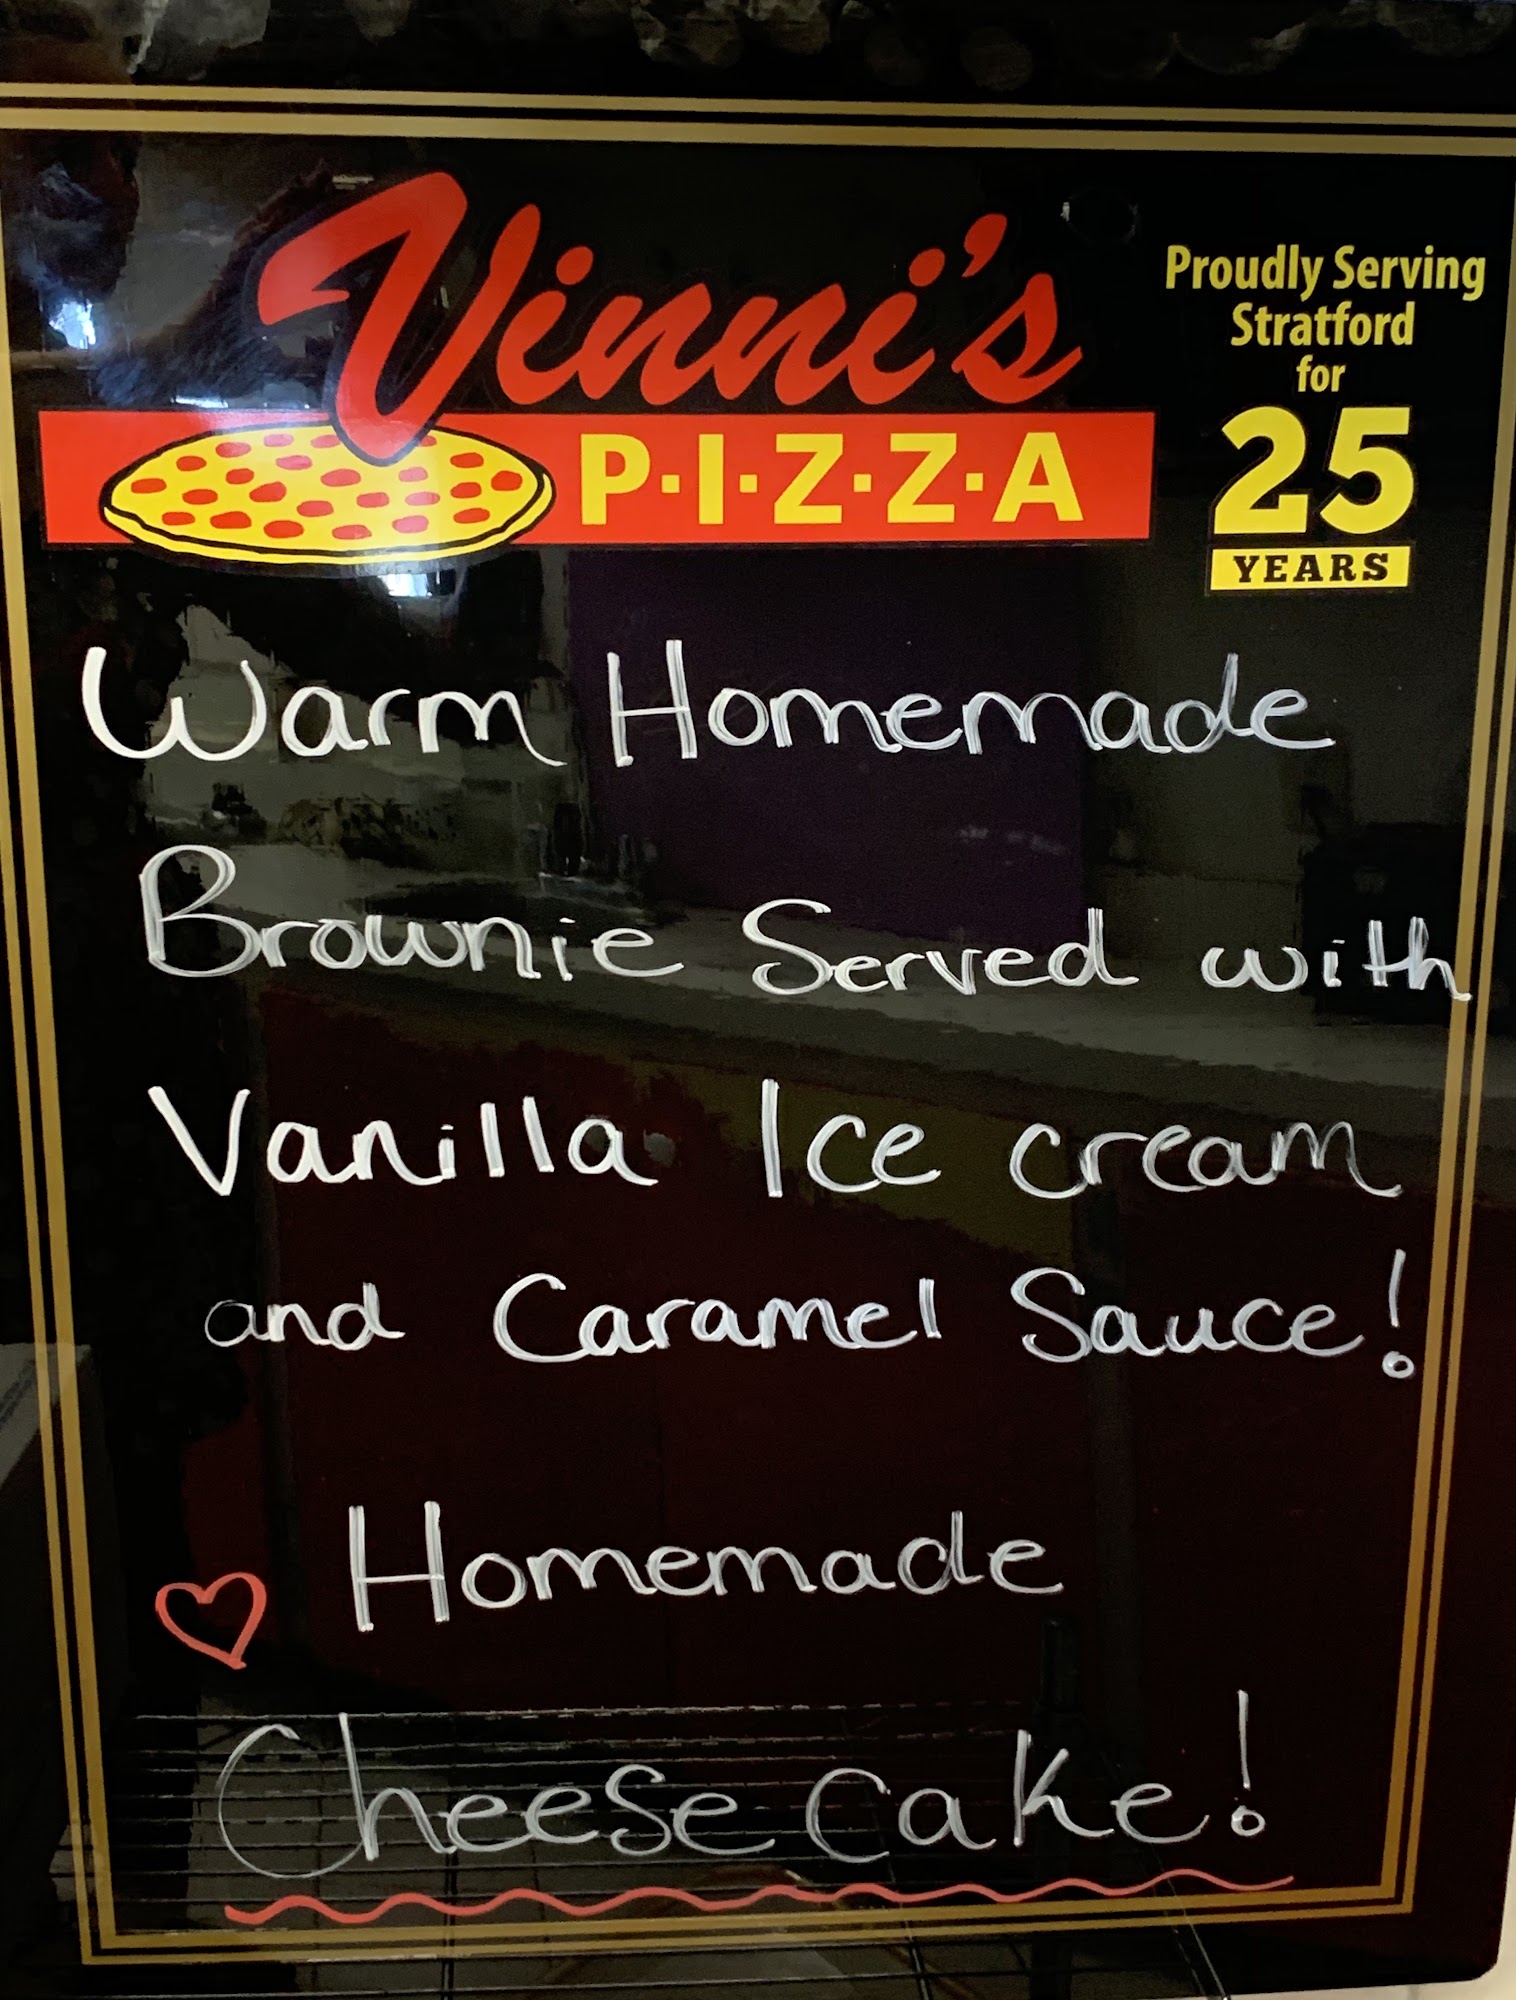 Vinni's
P·I·Z·Z·A
Proudly Serving
Stratford
for
25
YEARS
Warm Homemade
Brownie Served with
Vanilla Ice cream
and Caramel Sauce!
Homemade
Cheese cake!